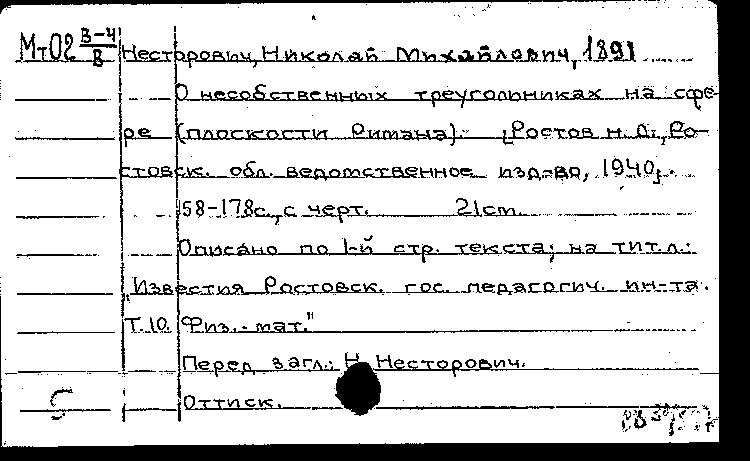 Мт02 В-4/В Несторович, Николай Михайлович, 1891
О несобственных треугольниках на сфе-
ре (плоскости Римана). [Ростов н. Д., Ро-
стовск. обл. ведомственное изд-во, 1940].
158-178с., с черт. 21cm.
Описано по 1-й стр. текста; на тит.л.:
"Известия Ростовск. гос. педагогич. ин-та.
Т.10. Физ.-мат."
Перед загл.: Н. Несторович.
Оттиск.